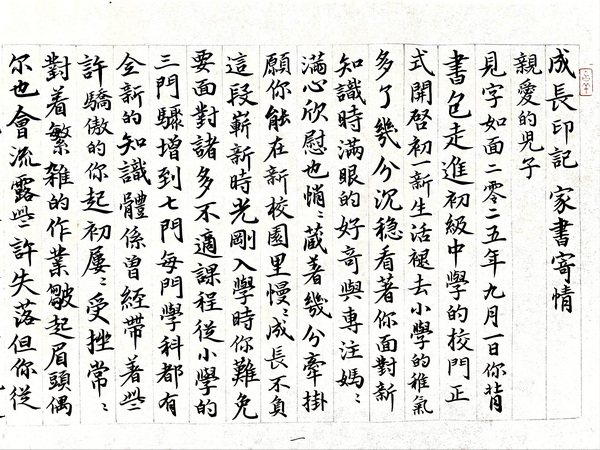 成長印記 家書寄情
親愛的児子
見字如面二零二五年九月一日你背
書包走進初級中學的校門正
式開啓初一新生活褪去小學的稚氣
多了幾分沉穩看著你面對新
知識時滿眼的好奇與專注媽〻
滿心欣慰也悄〻蔵著幾分牽掛
願你能在新校園里慢〻成長不負
這段嶄新時光剛入學時你難免
要面對諸多不適課程從小學的
三門驟增到七門每門學科都有
全新的知識體係曽經帶着些
許驕傲的你起初屢〻受挫常〻
對着繁雑的作業皺起眉頭偶
尔也會流露些許失落但你從
一